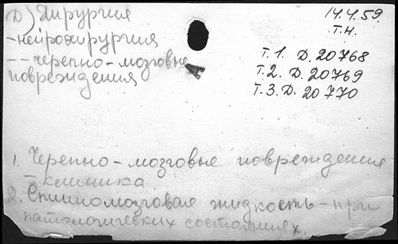 Д) Хирургия
-нейрохирургия
-- черепно-мозговые
повреждения
14.4.59.
Т.Н.
Т.1. Д. 20768
Т.2. Д. 20769
Т.3. Д. 20770
1. Черепно-мозговые повреждения
- клиника
2. Спинномозговая жидкость - при
патологических состояниях.